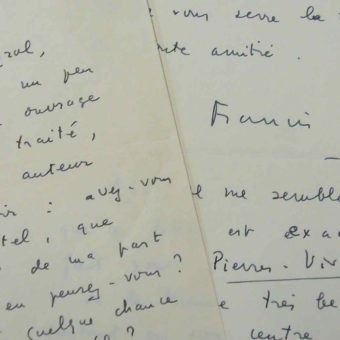 un peu
ouvrage
traité,
auteur
: avez-vous
tel, que
de ma part
en pensez-vous ?
quelque chance
?
vous serre la
amitié.
Francis
me semble
est exa
Pierres-Viv
très be
centre